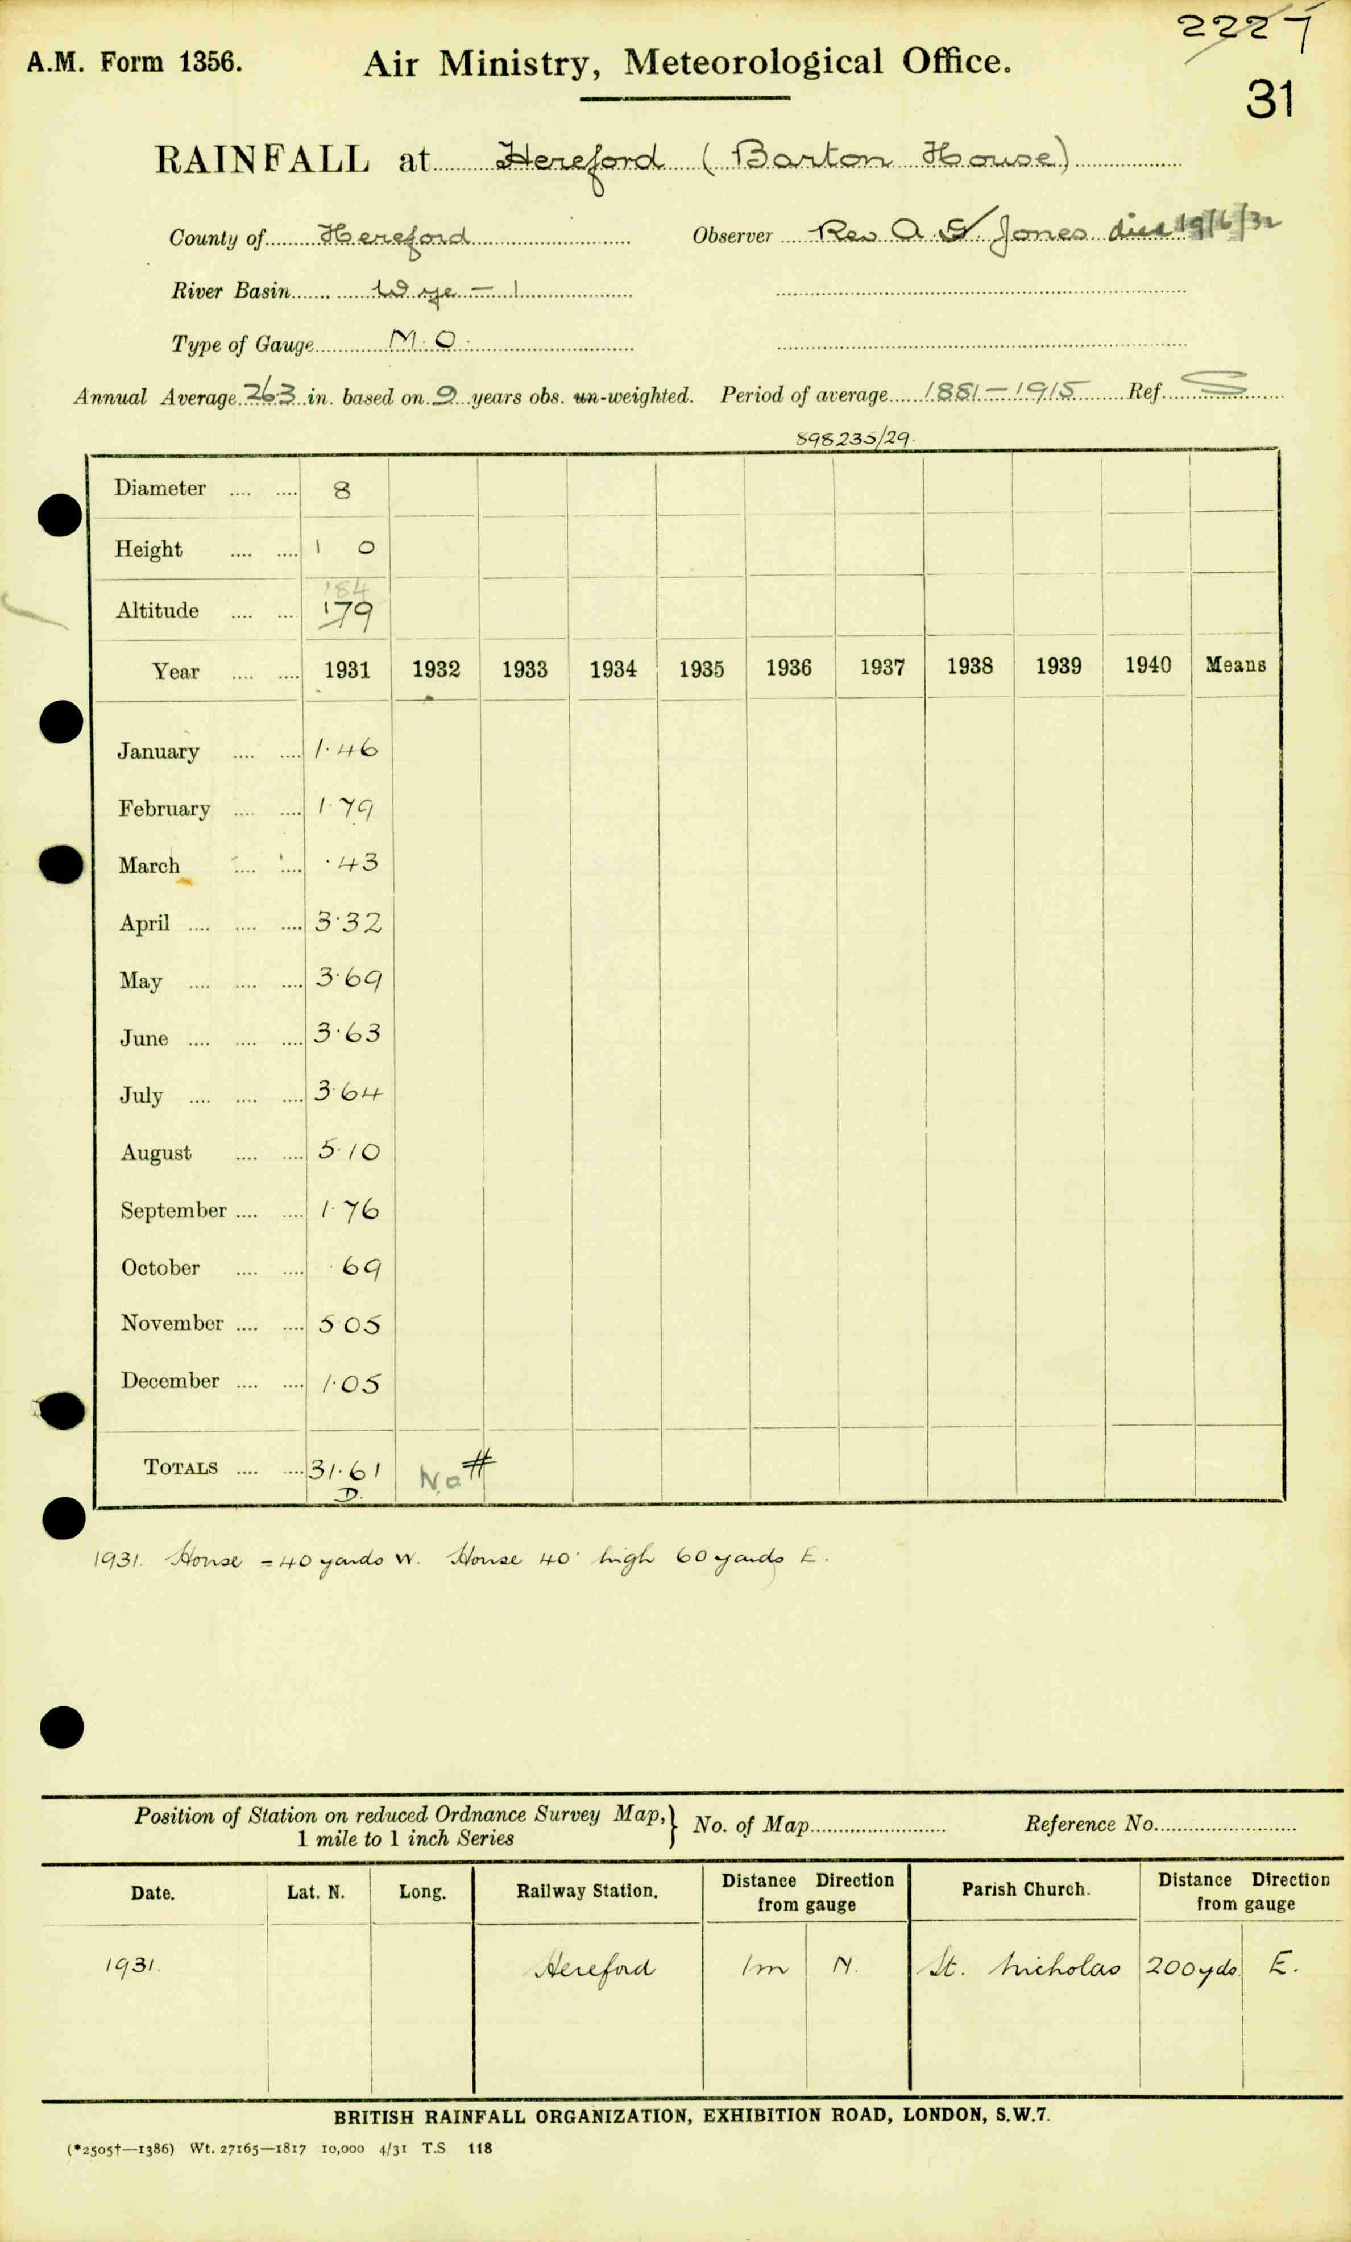 2227
A.M. Form 1356. Air Ministry, Meteorological Office.
31
RAINFALL at Hereford (Barton House)
County of Hereford Observer Rev A. G. Jones died 19/6/32
River Basin Wye - 1
Type of Gauge M.O.
Annual Average 26.3 in. based on 9 years obs. un-weighted. Period of average 1881-1915 Ref. S
898235/29.
Diameter 8
Height 1 0
184
Altitude 179
Year 1931 1932 1933 1934 1935 1936 1937 1938 1939 1940 Means
January 1.46
February 1.79
March .43
April 3.32
May 3.69
June 3.63
July 3.64
August 5.10
September 1.76
October .69
November 5.05
December 1.05
TOTALS 31.61 No #
D.
1931. House = 40 yards W. House 40' high 60 yards E.
Position of Station on reduced Ordnance Survey Map, } No. of Map Reference No.
1 mile to 1 inch Series
Date. Lat. N. Long. Railway Station. Distance Direction from gauge Parish Church. Distance Direction from gauge
1931. Hereford 1m N. St. Nicholas 200yds. E.
BRITISH RAINFALL ORGANIZATION, EXHIBITION ROAD, LONDON, S.W.7.
(*2505†—1386) Wt. 27165—1817 10,000 4/31 T.S 118